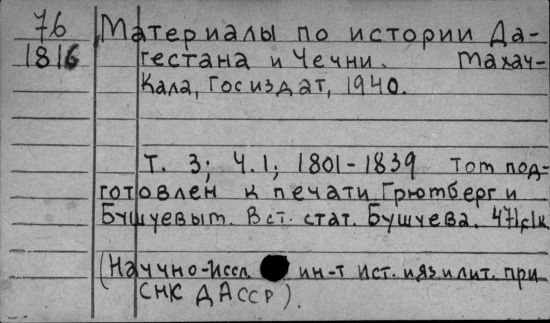 76
1816
Материалы по истории Да-
гестана и Чечни. Махач-
Кала, Госиздат, 1940.
Т. 3; Ч.1; 1801-1839 Том под-
готовлен к печати Грютберг и
Бушуевыт. Вст. стат. Бушуева.
(Научно-иссл. ин-т ист. и яз. и лит. при
СНК ДАССР).